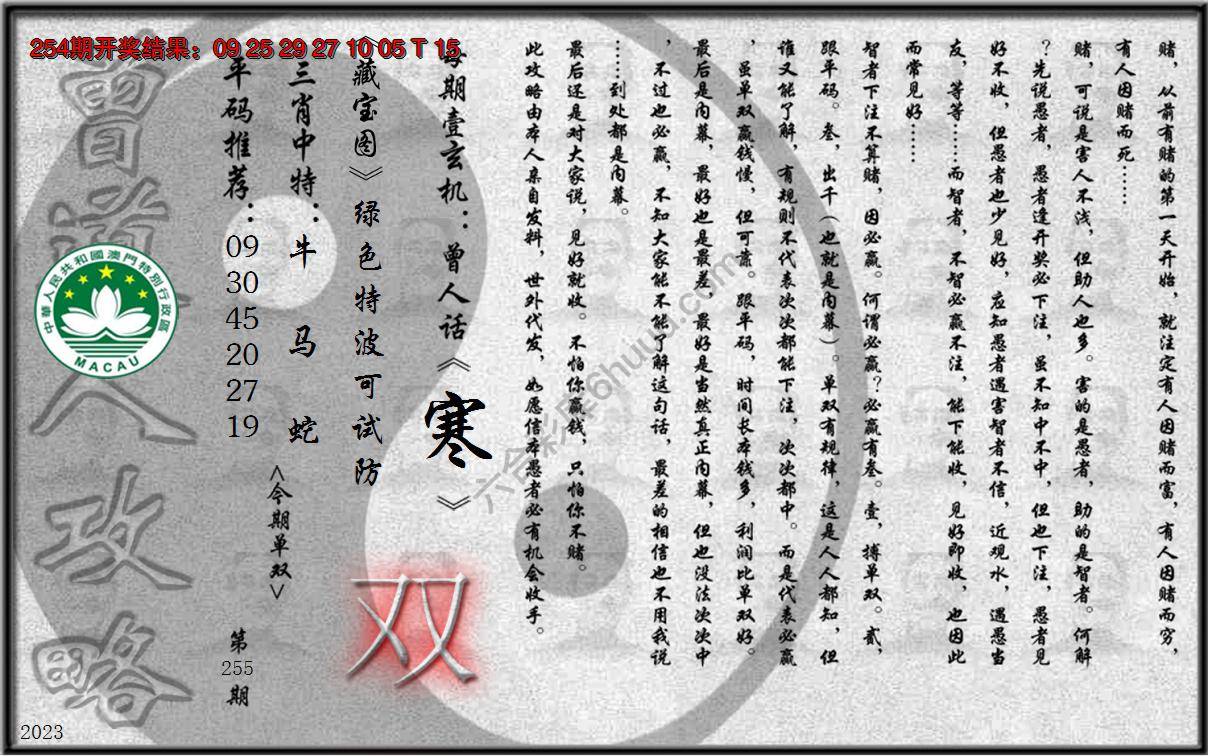 254期开奖结果：09 25 29 27 10 05 T 15
赌，从前有赌的第一天开始，就注定有人因赌而富，有人因赌而穷，
有人因赌而死……
赌，可说是害人不浅，但助人也多。害的是愚者，助的是智者。何解
？先说愚者，愚者逢开奖必下注，虽不知中不中，但也下注，愚者见
好不收，但愚者也少见好，应知愚者遇害智者不信，近观水，遇愚当
友，等等……而智者，不智必赢不注，能下能收，见好即收，也因此
而常见好……
智者下注不算赌，因必赢。何谓必赢？必赢有叁。壹，搏单双。贰，
跟平码。叁，出千（也就是内幕）。单双有规律，这是人人都知，但
谁又能了解，有规则不代表次次都能下注，次次都中。而是代表必赢
，虽单双赢钱慢，但可靠。跟平码，时间长本钱多，利润比单双好。
最后是内幕，最好也是最差，最好是当然真正内幕，但也没法次次中
，不过也必赢，不知大家能不能了解这句话，最差的相信也不用我说
……到处都是内幕。
最后还是对大家说，见好就收。不怕你赢钱，只怕你不赌。
此攻略由本人亲自发料，世外代发，如愿信本愚者必有机会收手。
每期壹玄机：曾人话《寒》
《藏宝图》绿色特波可试防
双
三肖中特：牛 马 蛇
<今期单双>
平码推荐：09 30 45 20 27 19
第255期
曾道人攻略
中華人民共和國澳門特別行政區
MACAU
六合彩库6huuu.com
2023